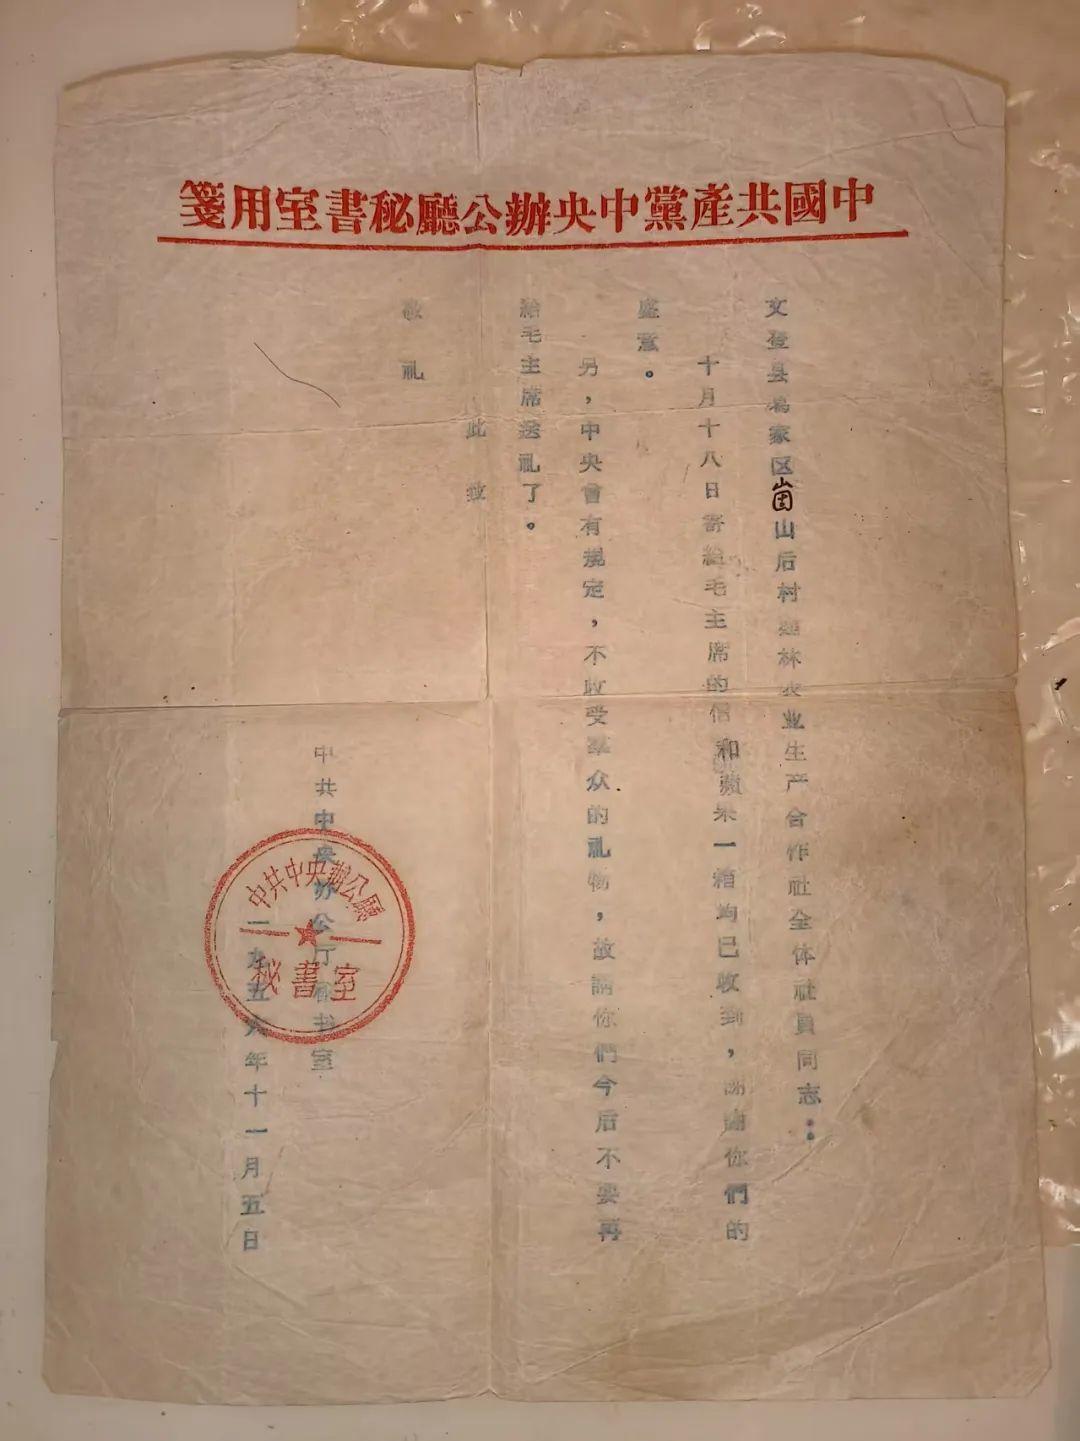 中國共產黨中央辦公廳秘書室用箋
文登县葛家区崮山后村林农业生产合作社全体社員同志：
十月十八日寄給毛主席的信和蘋果一箱均已收到，謝謝你們的
盛意。
另，中央曾有規定，不收受羣众的礼物，故請你們今后不要再
給毛主席送礼了。
此致
敬礼
中共中央办公厅秘书室
一九五六年十一月五日
中共中央辦公廳
秘書室